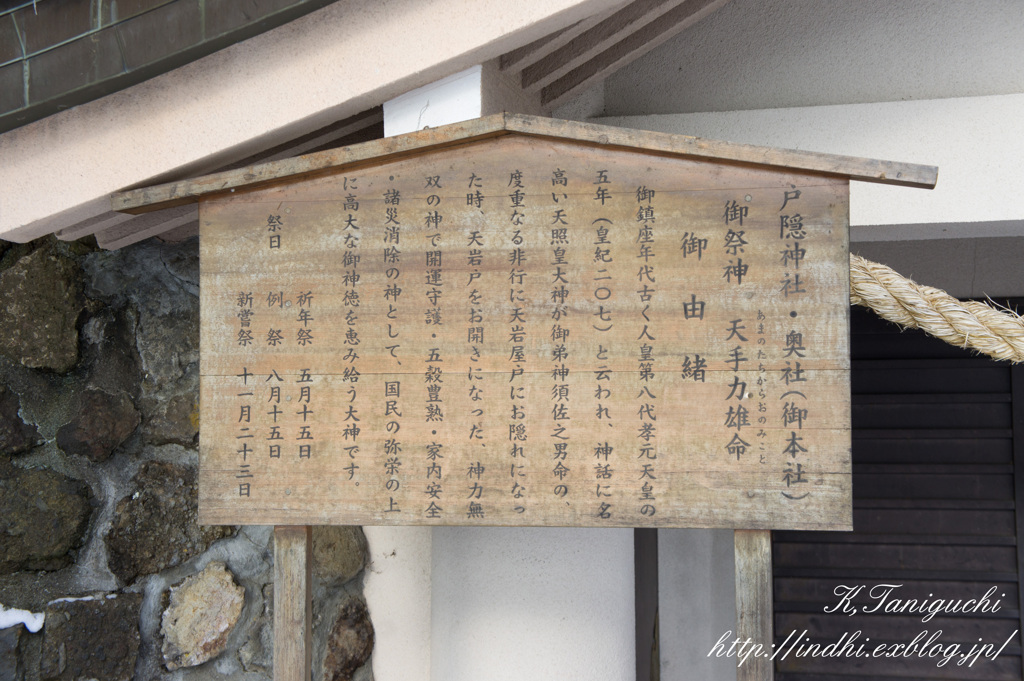 戸隠神社・奥社（御本社）
御祭神　天手力雄命
あまのたちからおのみこと
御由緒
御鎮座年代古く人皇第八代孝元天皇の
五年（皇紀二〇七）と云われ、神話に名
高い天照皇大神が御弟神須佐之男命の、
度重なる非行に天岩屋戸にお隠れになっ
た時、天岩戸をお開きになった、神力無
双の神で開運守護・五穀豊熟・家内安全
・諸災消除の神として、国民の弥栄の上
に高大な御神徳を恵み給う大神です。
祭日
祈年祭　五月十五日
例　祭　八月十五日
新嘗祭　十一月二十三日
K,Taniguchi
http://indhi.exblog.jp/